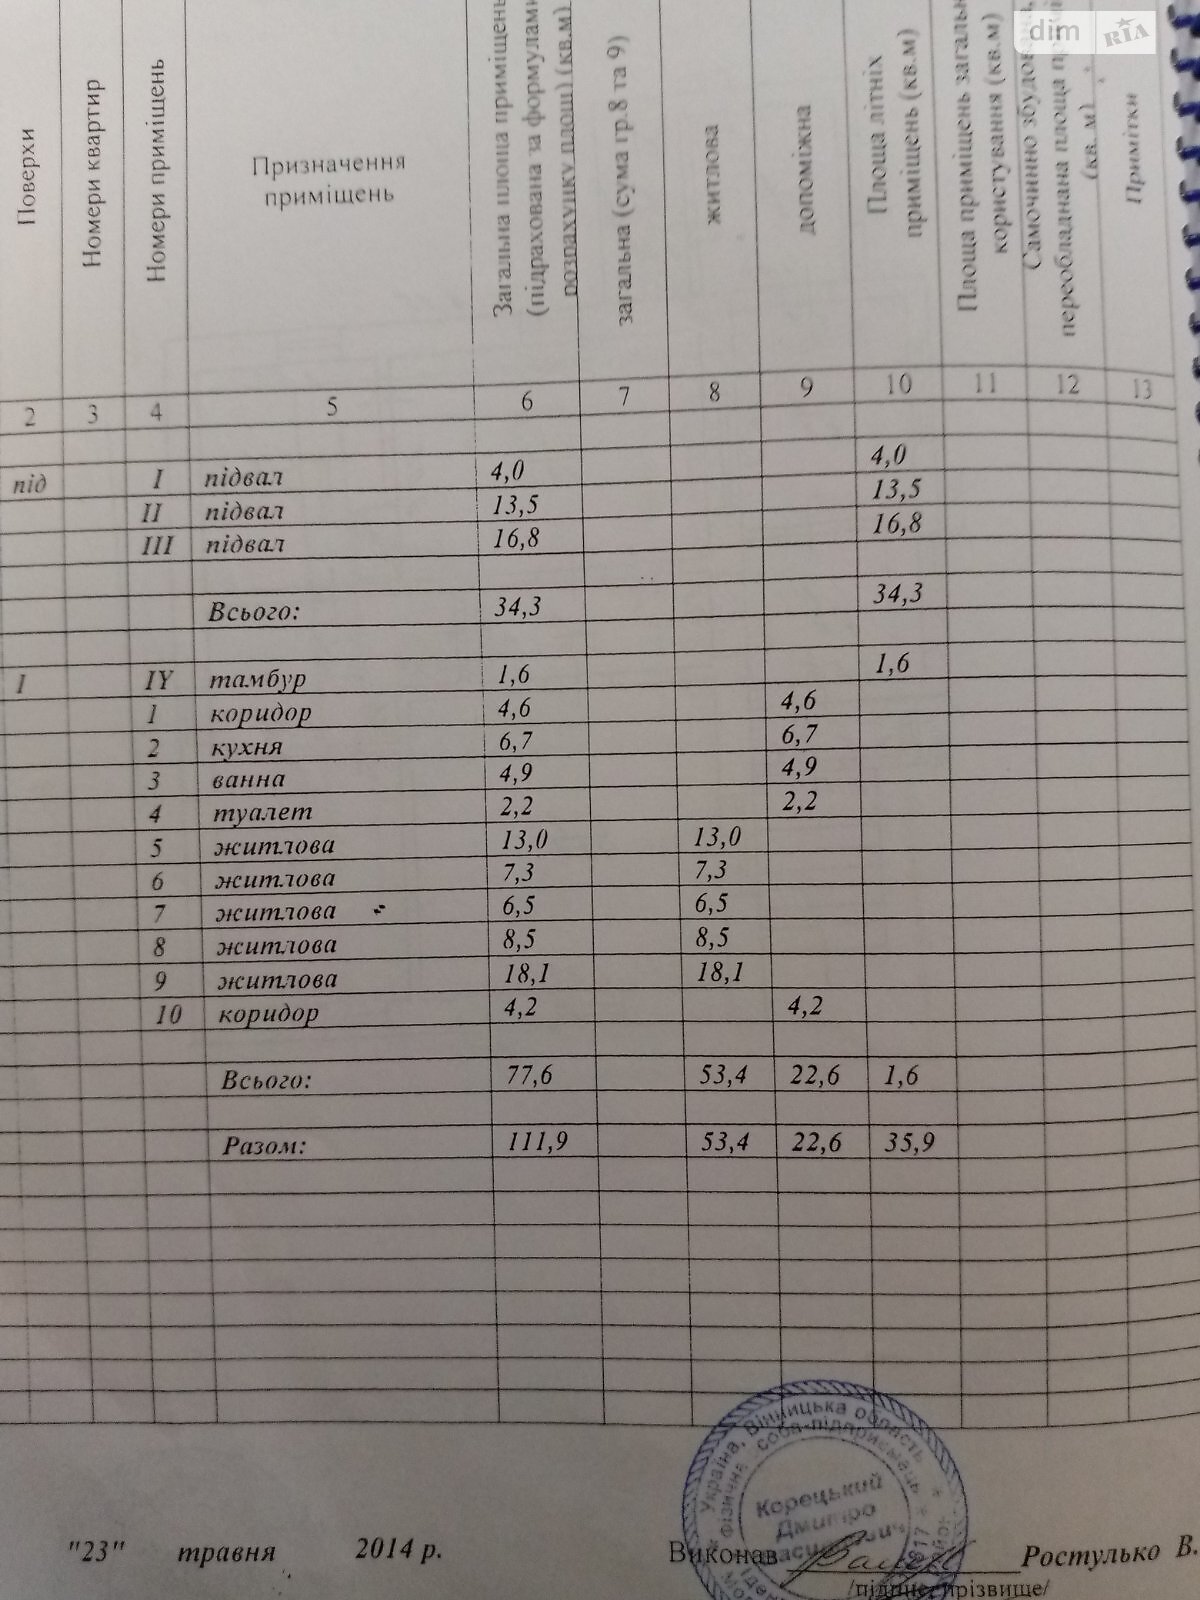 dim RIA
Поверхи
Номери квартир
Номери приміщень
Призначення
приміщень
Загальна площа приміщень
(підрахована за формулами
розрахунку площ) (кв.м)
загальна (сума гр.8 та 9)
житлова
допоміжна
Площа літніх
приміщень (кв.м)
Площа приміщень
користування (кв.м)
Самочинно
переобладнана площа
(кв.м)
Примітки
2 3 4 5 6 7 8 9 10 11 12 13
під I підвал 4,0 4,0
II підвал 13,5 13,5
III підвал 16,8 16,8
Всього: 34,3 34,3
I IY тамбур 1,6 1,6
1 коридор 4,6 4,6
2 кухня 6,7 6,7
3 ванна 4,9 4,9
4 туалет 2,2 2,2
5 житлова 13,0 13,0
6 житлова 7,3 7,3
7 житлова 6,5 6,5
8 житлова 8,5 8,5
9 житлова 18,1 18,1
10 коридор 4,2 4,2
Всього: 77,6 53,4 22,6 1,6
Разом: 111,9 53,4 22,6 35,9
Україна, Вінницька область
Корецький
Дмитро
"23" травня 2014 р. Виконав Ростулько В.